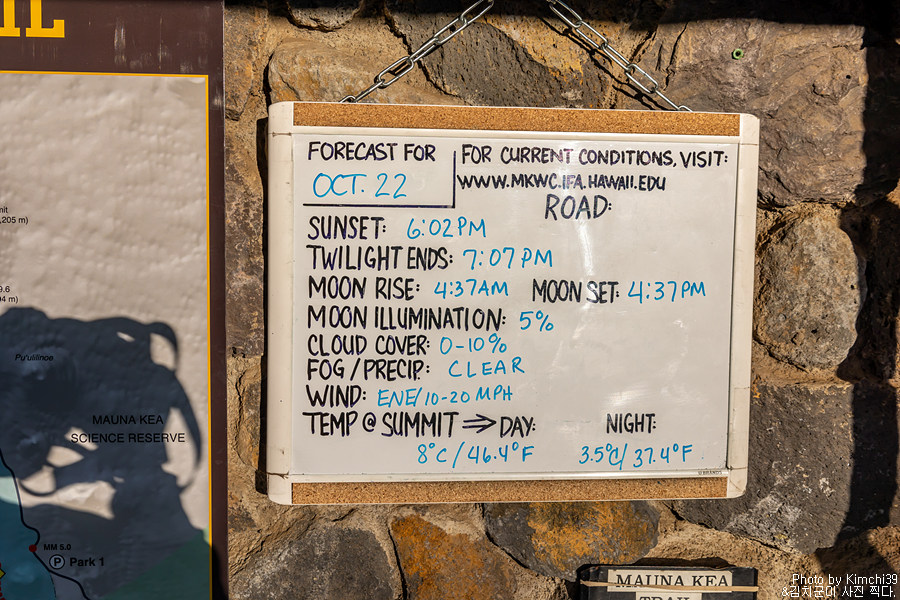 IL
FORECAST FOR
OCT. 22
FOR CURRENT CONDITIONS, VISIT:
WWW.MKWC.IFA.HAWAII.EDU
ROAD:
SUNSET: 6:02PM
TWILIGHT ENDS: 7:07PM
MOON RISE: 4:37AM MOON SET: 4:37PM
MOON ILLUMINATION: 5%
CLOUD COVER: 0-10%
FOG/PRECIP: CLEAR
WIND: ENE/10-20 MPH
TEMP @ SUMMIT ⇒ DAY: NIGHT:
8°C/46.4°F 3.5°C/37.4°F
,205 m)
9.6
Pu'ulilinoe
MAUNA KEA
SCIENCE RESERVE
MM 5.0
P Park 1
MAUNA KEA
TRAIL
Photo by Kimchi39
&김치군이 사진 찍다.